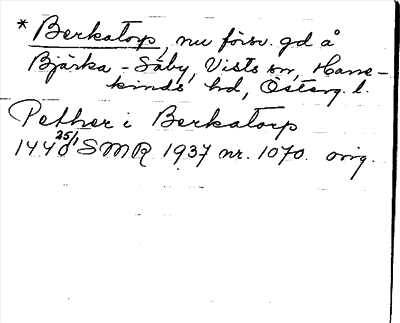 * Berkatorp, nu försv. gd å
Bjärka-Säby, Vists sn, Hane-
kinds hd, Österg. l.
Pether i Berkatorp
1440 25/1 SMR 1937 nr. 1070. orig.